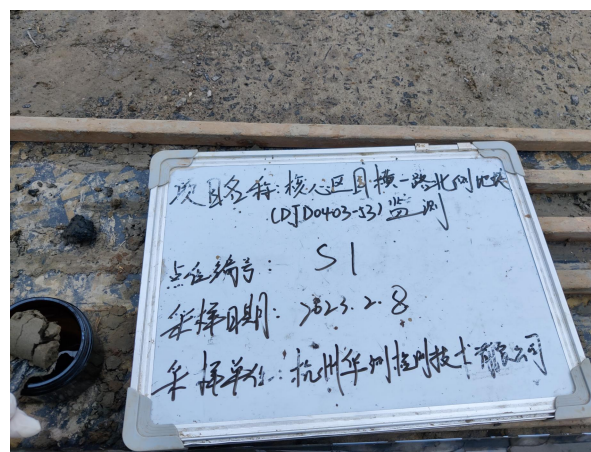 项目名称：核心区目横一路北侧地块
(DJD0403-53)监测
点位编号：S1
采样日期：2023.2.8
采样单位：杭州华测检测技术有限公司